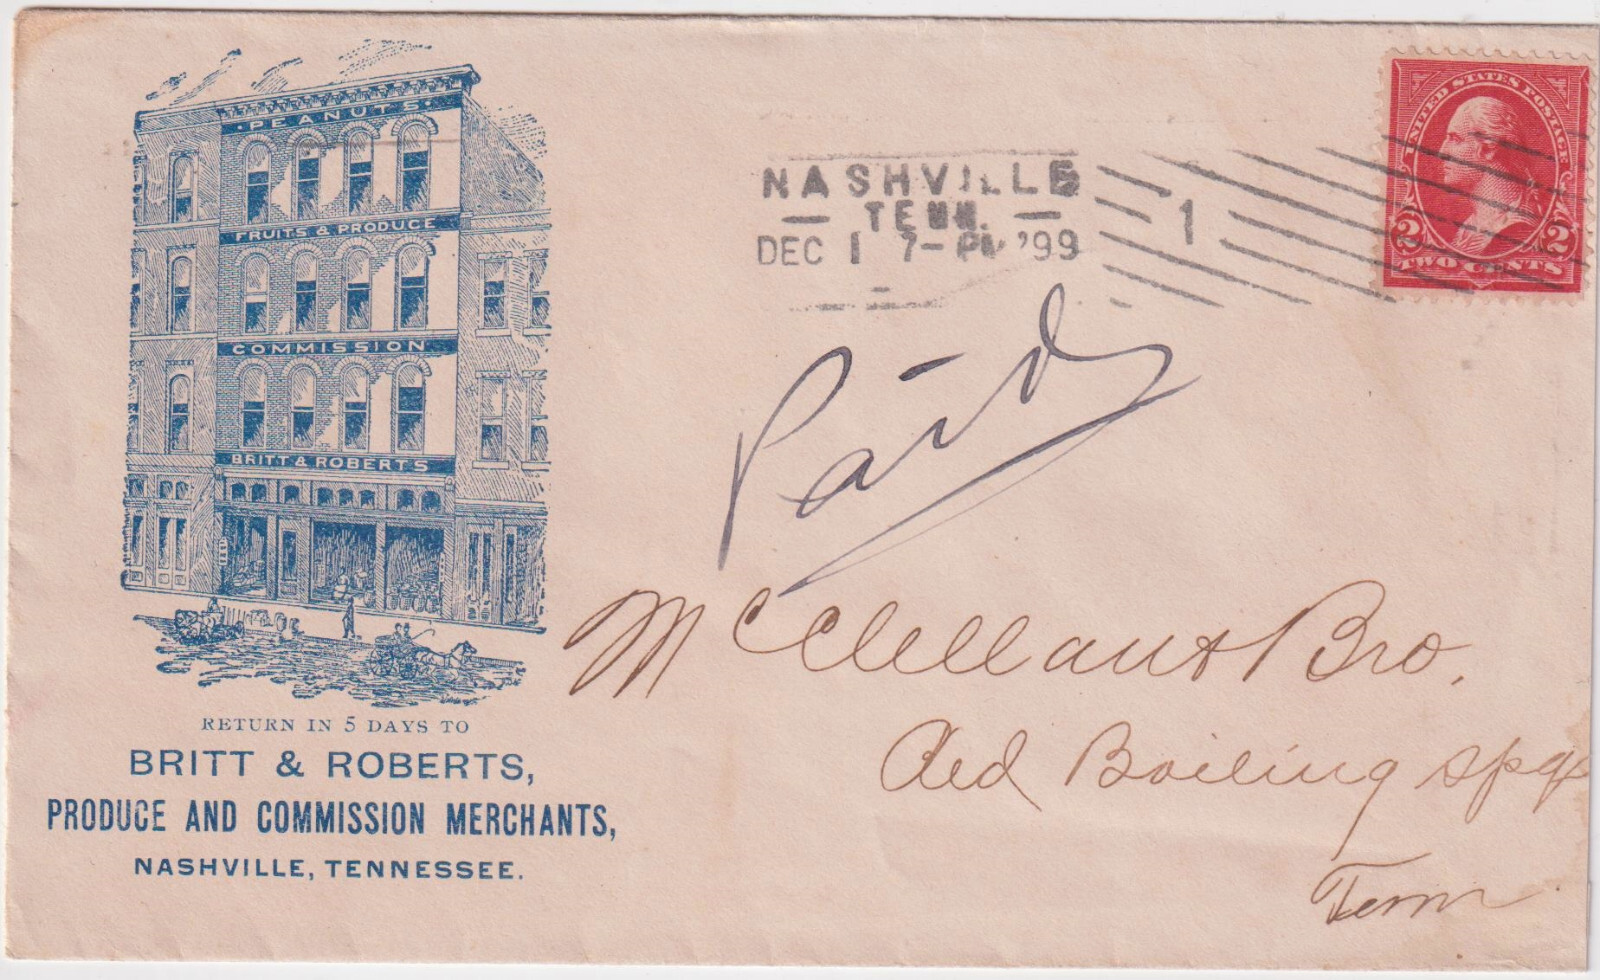 · PEANUTS ·
FRUITS & PRODUCE
COMMISSION
BRITT & ROBERTS
RETURN IN 5 DAYS TO
BRITT & ROBERTS,
PRODUCE AND COMMISSION MERCHANTS,
NASHVILLE, TENNESSEE.
NASHVILLE
— TENN. —
DEC 1 7-PM '99
1
UNITED STATES POSTAGE
2 2
TWO CENTS
Paid
McClellan & Bro.
Red Boiling Spgs
Tenn